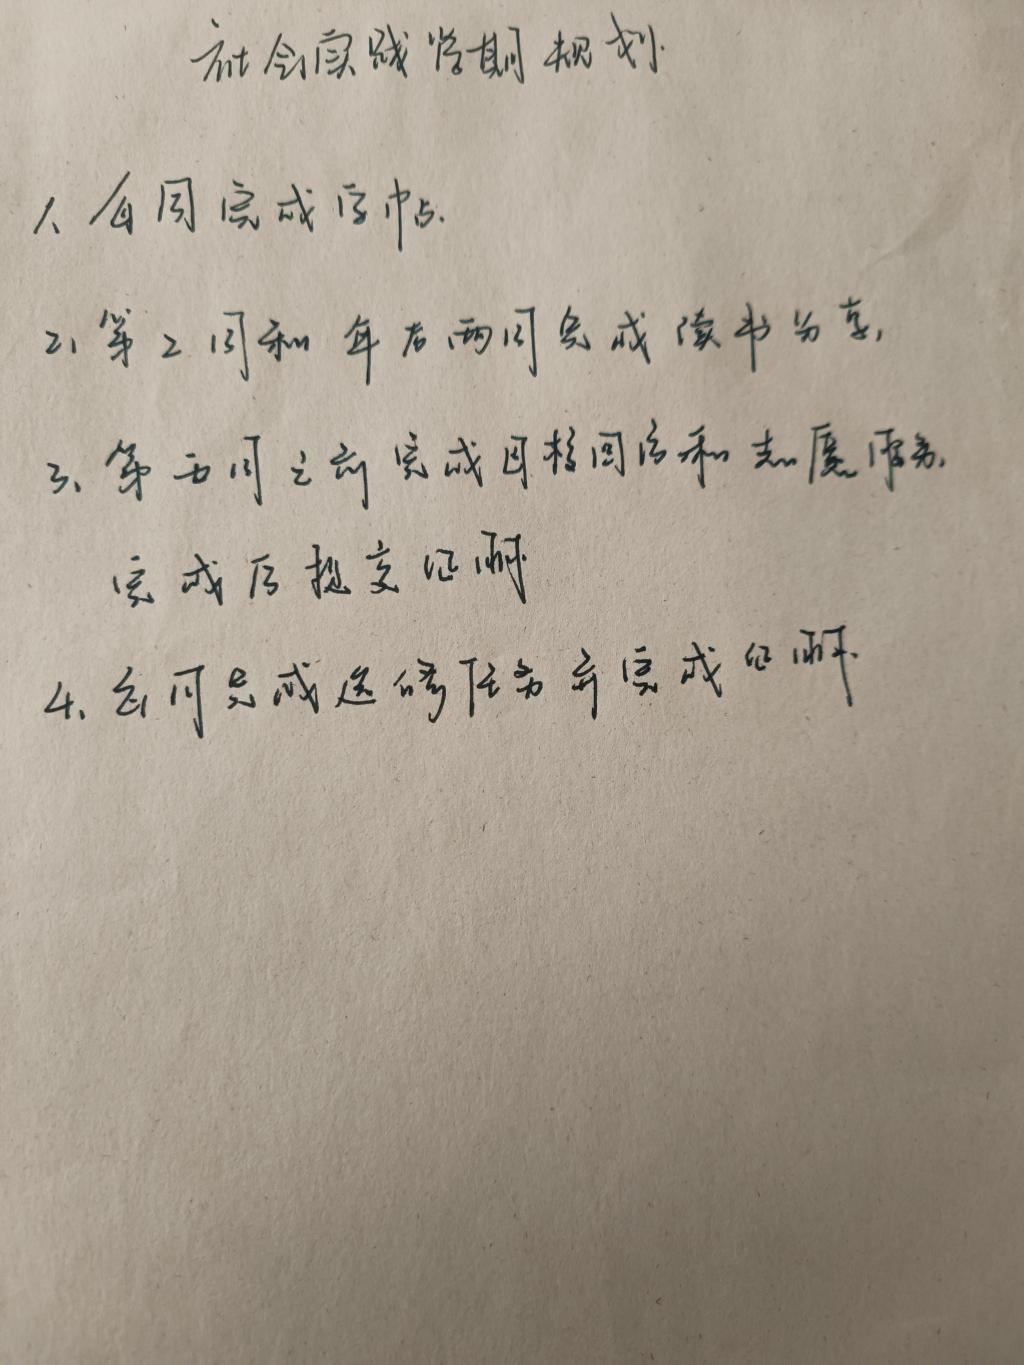 社会实践学期规划
1、每周完成字帖.
2、第2周和年后两周完成读书分享,
3、第五周之前完成母校回访和志愿服务,
完成后提交证明
4、每周完成选修任务并完成证明.